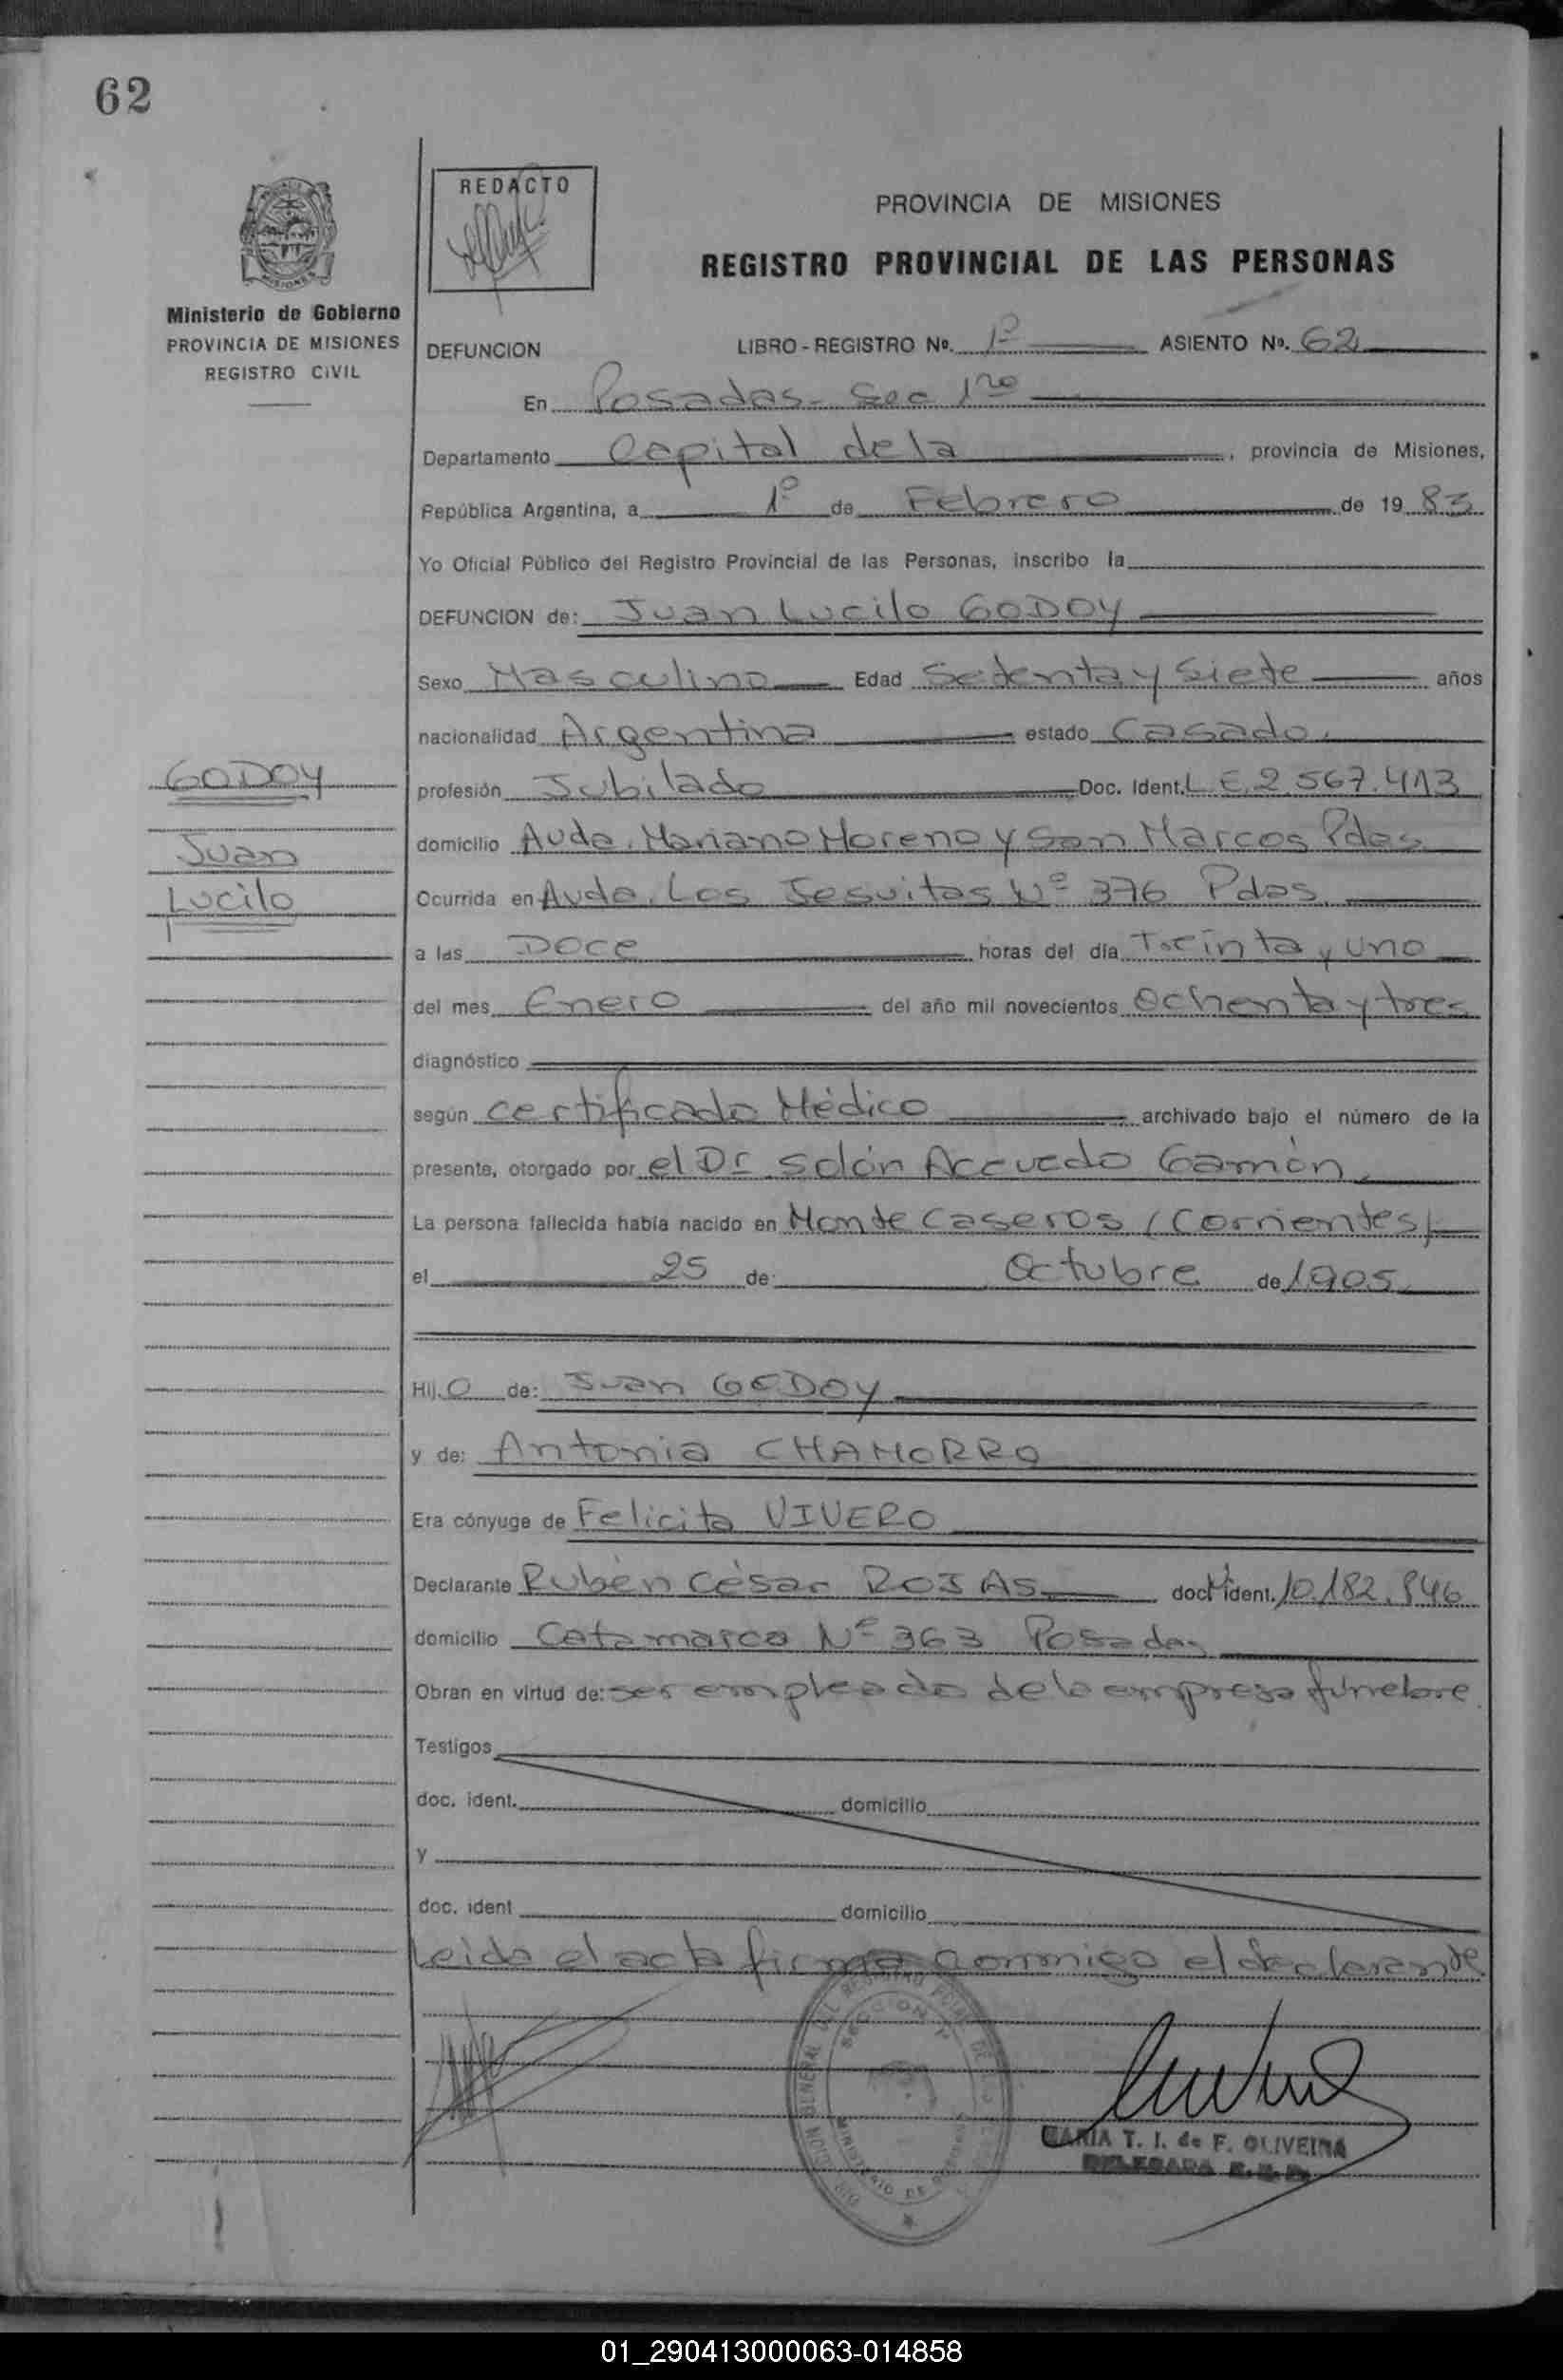 62
REDACTO
PROVINCIA DE MISIONES
REGISTRO PROVINCIAL DE LAS PERSONAS
Ministerio de Gobierno
PROVINCIA DE MISIONES
REGISTRO CIVIL
DEFUNCION LIBRO - REGISTRO Nº. 1º ASIENTO Nº. 62
En Posadas - Sec 1ra
Departamento Capital de la , provincia de Misiones,
República Argentina, a 1º de Febrero de 19 83
Yo Oficial Público del Registro Provincial de las Personas, inscribo la
DEFUNCION de: Juan Lucilo GODOY
Sexo Masculino Edad Setenta y Siete años
nacionalidad Argentina estado Casado
GODOY
Juan
Lucilo
profesión Jubilado Doc. Ident. L.E. 2.567.413
domicilio Avda. Mariano Moreno y San Marcos Pdas
Ocurrida en Avda. Los Jesuitas Nº 376 Pdas.
a las Doce horas del día Treinta y uno
del mes Enero del año mil novecientos Ochenta y tres
diagnóstico
según certificado Médico archivado bajo el número de la
presente, otorgado por el Dr. Solón Acevedo Gamón
La persona fallecida había nacido en Monte Caseros (Corrientes)
el 25 de Octubre de 1905
Hij o de: Juan GODOY
y de: Antonia CHAMORRO
Era cónyuge de Felicita VIVERO
Declarante Rubén César ROJAS doc. ident. 10.182.846
domicilio Catamarca Nº 363 Posadas
Obran en virtud de: ser empleado de la empresa fúnebre
Testigos
doc. ident. domicilio
y
doc. ident domicilio
Leida el acta firma conmigo el declarante
SECCION
MINISTERIO DE GOBIERNO
MARIA T. I. de F. OLIVEIRA
DELEGADA
01_290413000063-014858